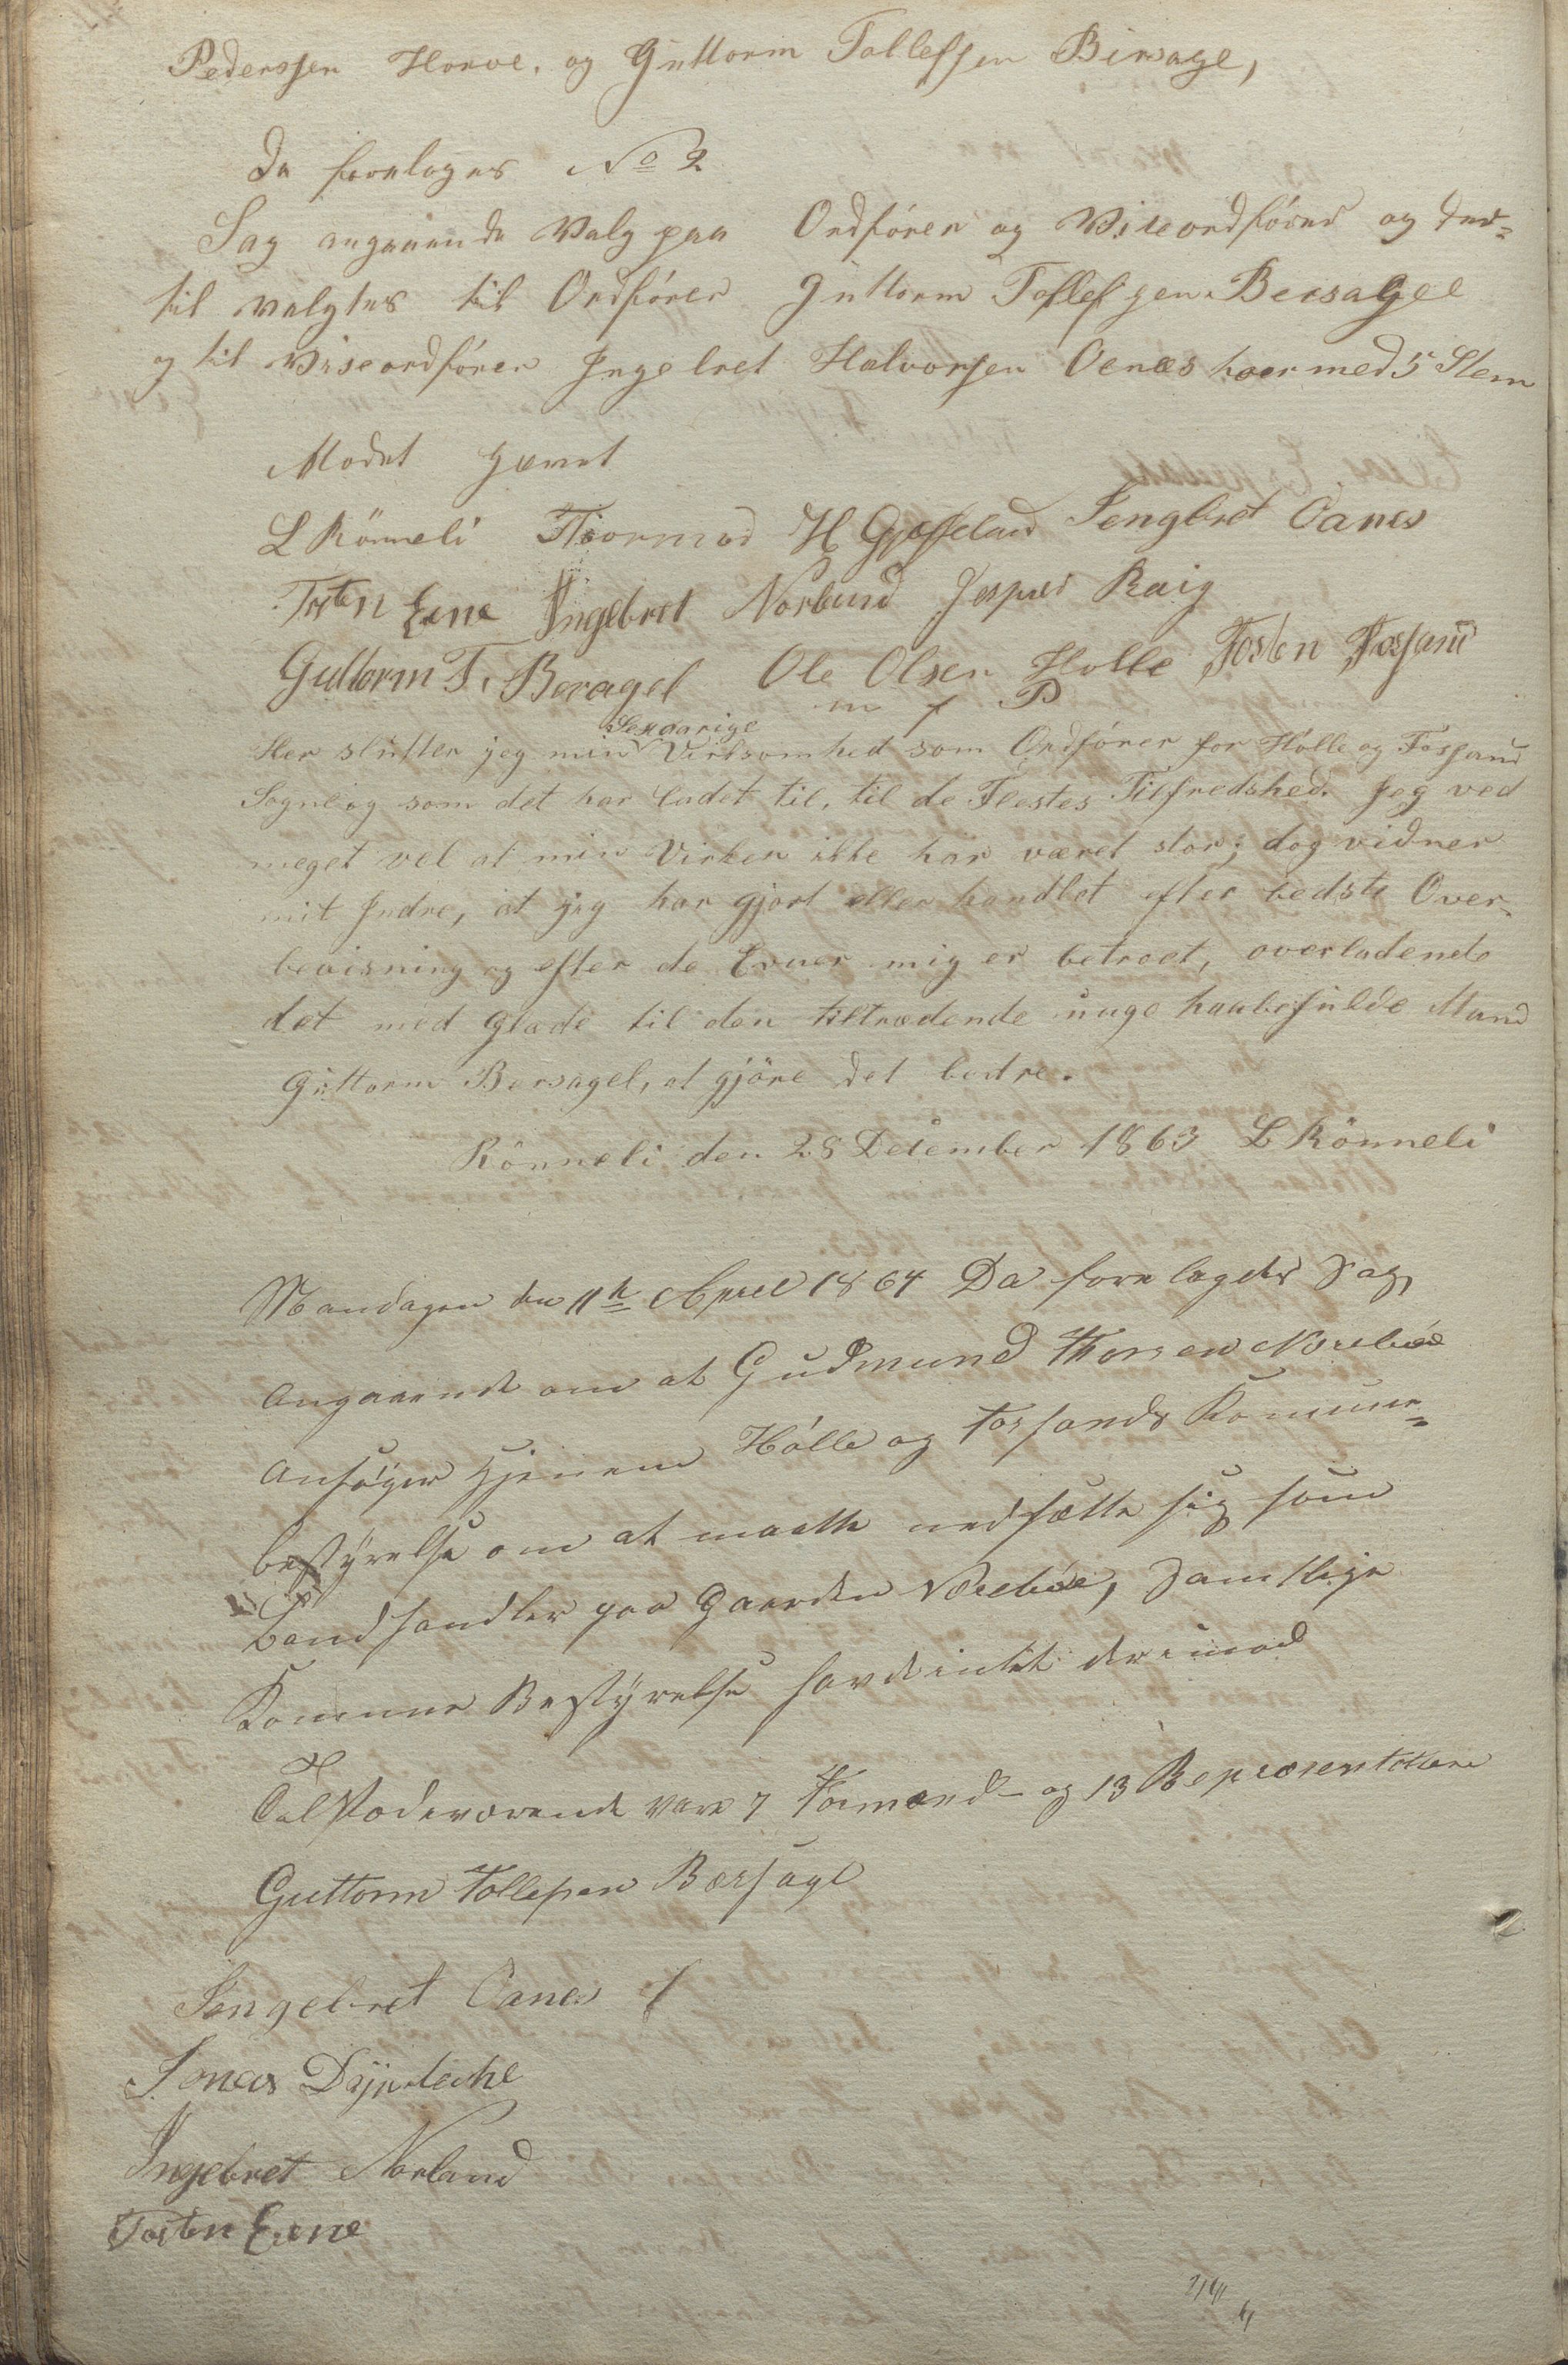 Pederssen Horve. og Guttorm Tollefsen Birsagel,
Da foretoges No 2
Sag angaaende Valg paa Ordfører og Viseordfører og der=
til valgtes til Ordfører Guttorm Tollefsen Bersagel
og til Viseordfører Ingebret Halvorsen Oenæs hver med 5 Stem
Mødet hævet
L Rönneli Thormod H Gjesseland Iengbret Oanes
Tosten Eene Ingebret Norland Jesper Raig
Guttorm T. Beragel Ole Olsen Holle Tosten Fossand
m f P
Sexaarige
Her slutter jeg min Virksomhed som Ordfører for Hölle og Fossand
Sogne og som det har ladet til, til de Flestes Tilfredshed. Jeg ved
meget vel at min Virken ikke har været stor; dog vidner
mit Indre, at jeg har gjort eller handlet efter bedste Over-
bevisning og efter de Evner mig er betroet, overladende
det med Glæde til den tiltrædende unge haabefulde Mand
Guttorm Bersagel, at gjöre det bedre.
Rönneli den 28 December 1863 L Rönneli
Mandagen den 11te April 1864 Da foretagdes Sag,
angaaende om at Gudmund Thorsen Norebøe
ansøger gjenem Hölle og Fossands Komune=
bestyrelse om at maatte nedsætte sig som
Landhandler paa Gaarden Norebøe, Samtlige
Komune Bestyrelse havde intet derimod
Tilstædeværende vare 7 Formænd og 13 Repræsentattere
Guttorm Tollefsen Bersagel
Iengebret Oanes
Jonas Dypeleche
Ingebret Norland
Tosten Eene